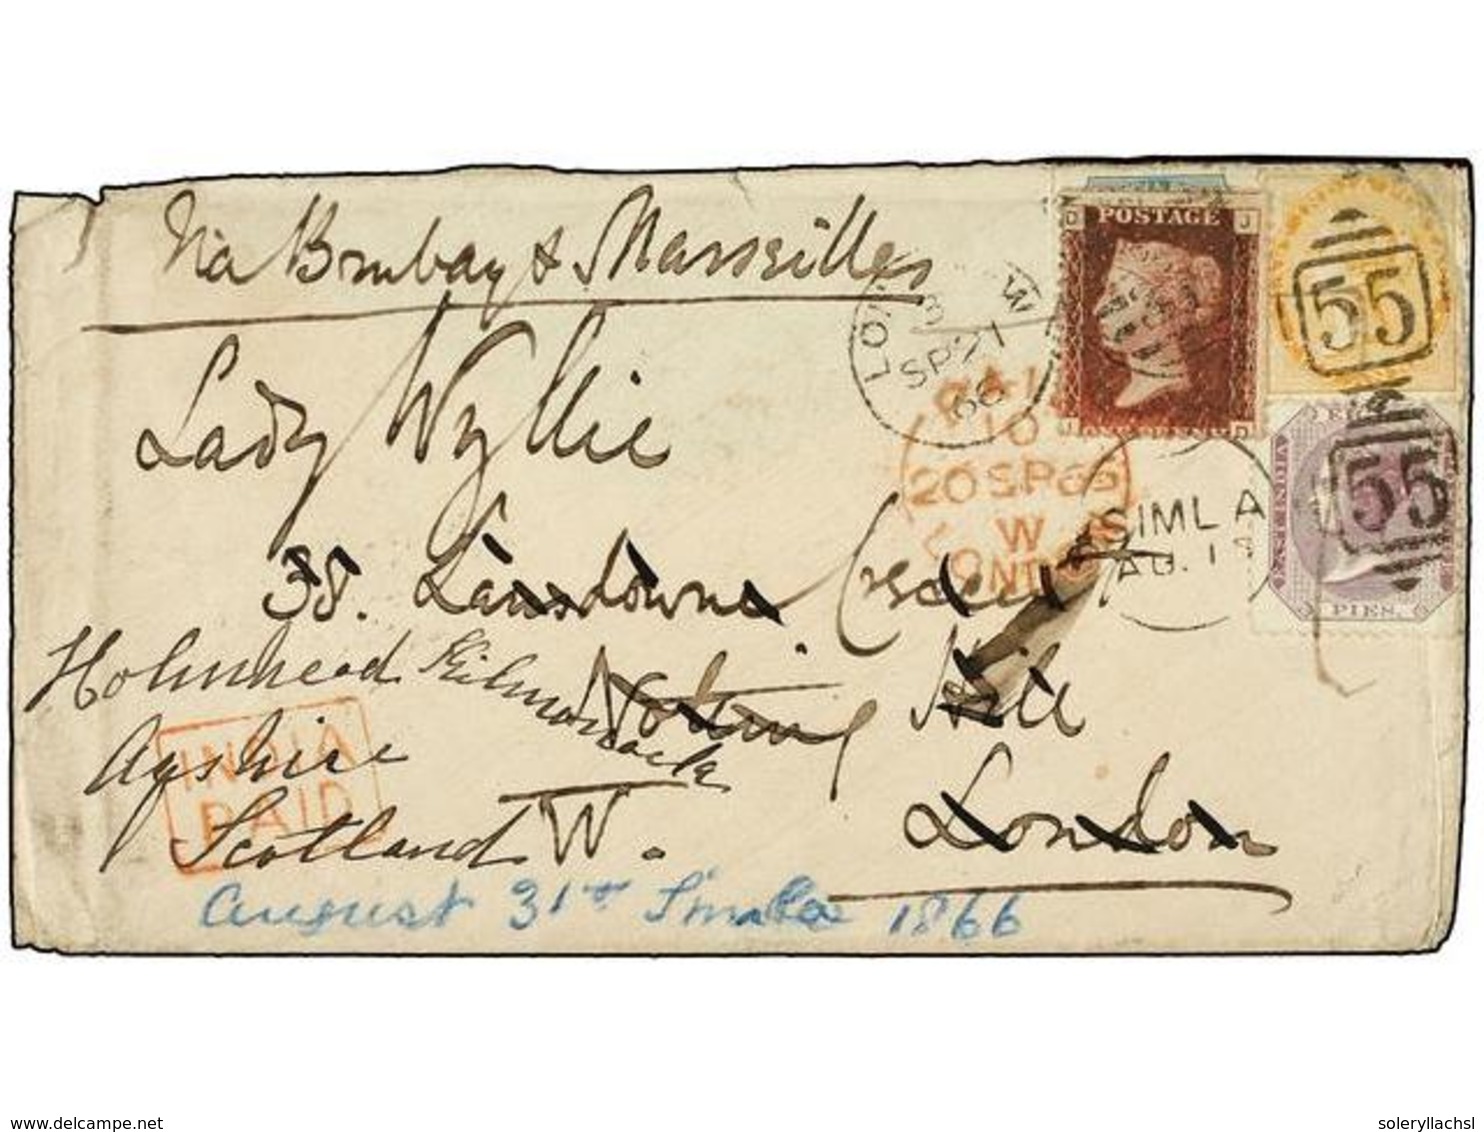 Via Bombay & Marseilles
Lady Wyllie
38. Lansdowne Crescent
Notting Hill
London
W.
Holmhead Kilmarnock
Ayshire
Scotland
INDIA
PAID
August 31st Simla 1866
LON
W
SP 21
66
PAID
10
20 SP 66
W
LONDON
SIMLA
AU. 1
D POSTAGE J
J D
55
55
EAST INDIA
PIES.
delcampe.net
soleryllachsl